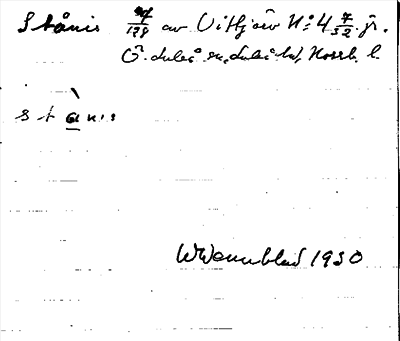 Stånis 7/128 av Vitsjön N:o 4 7/32 jr.
Ö. Luleå sn, Luleå hd, Norrb. l.
stànis
WWennblad 1930